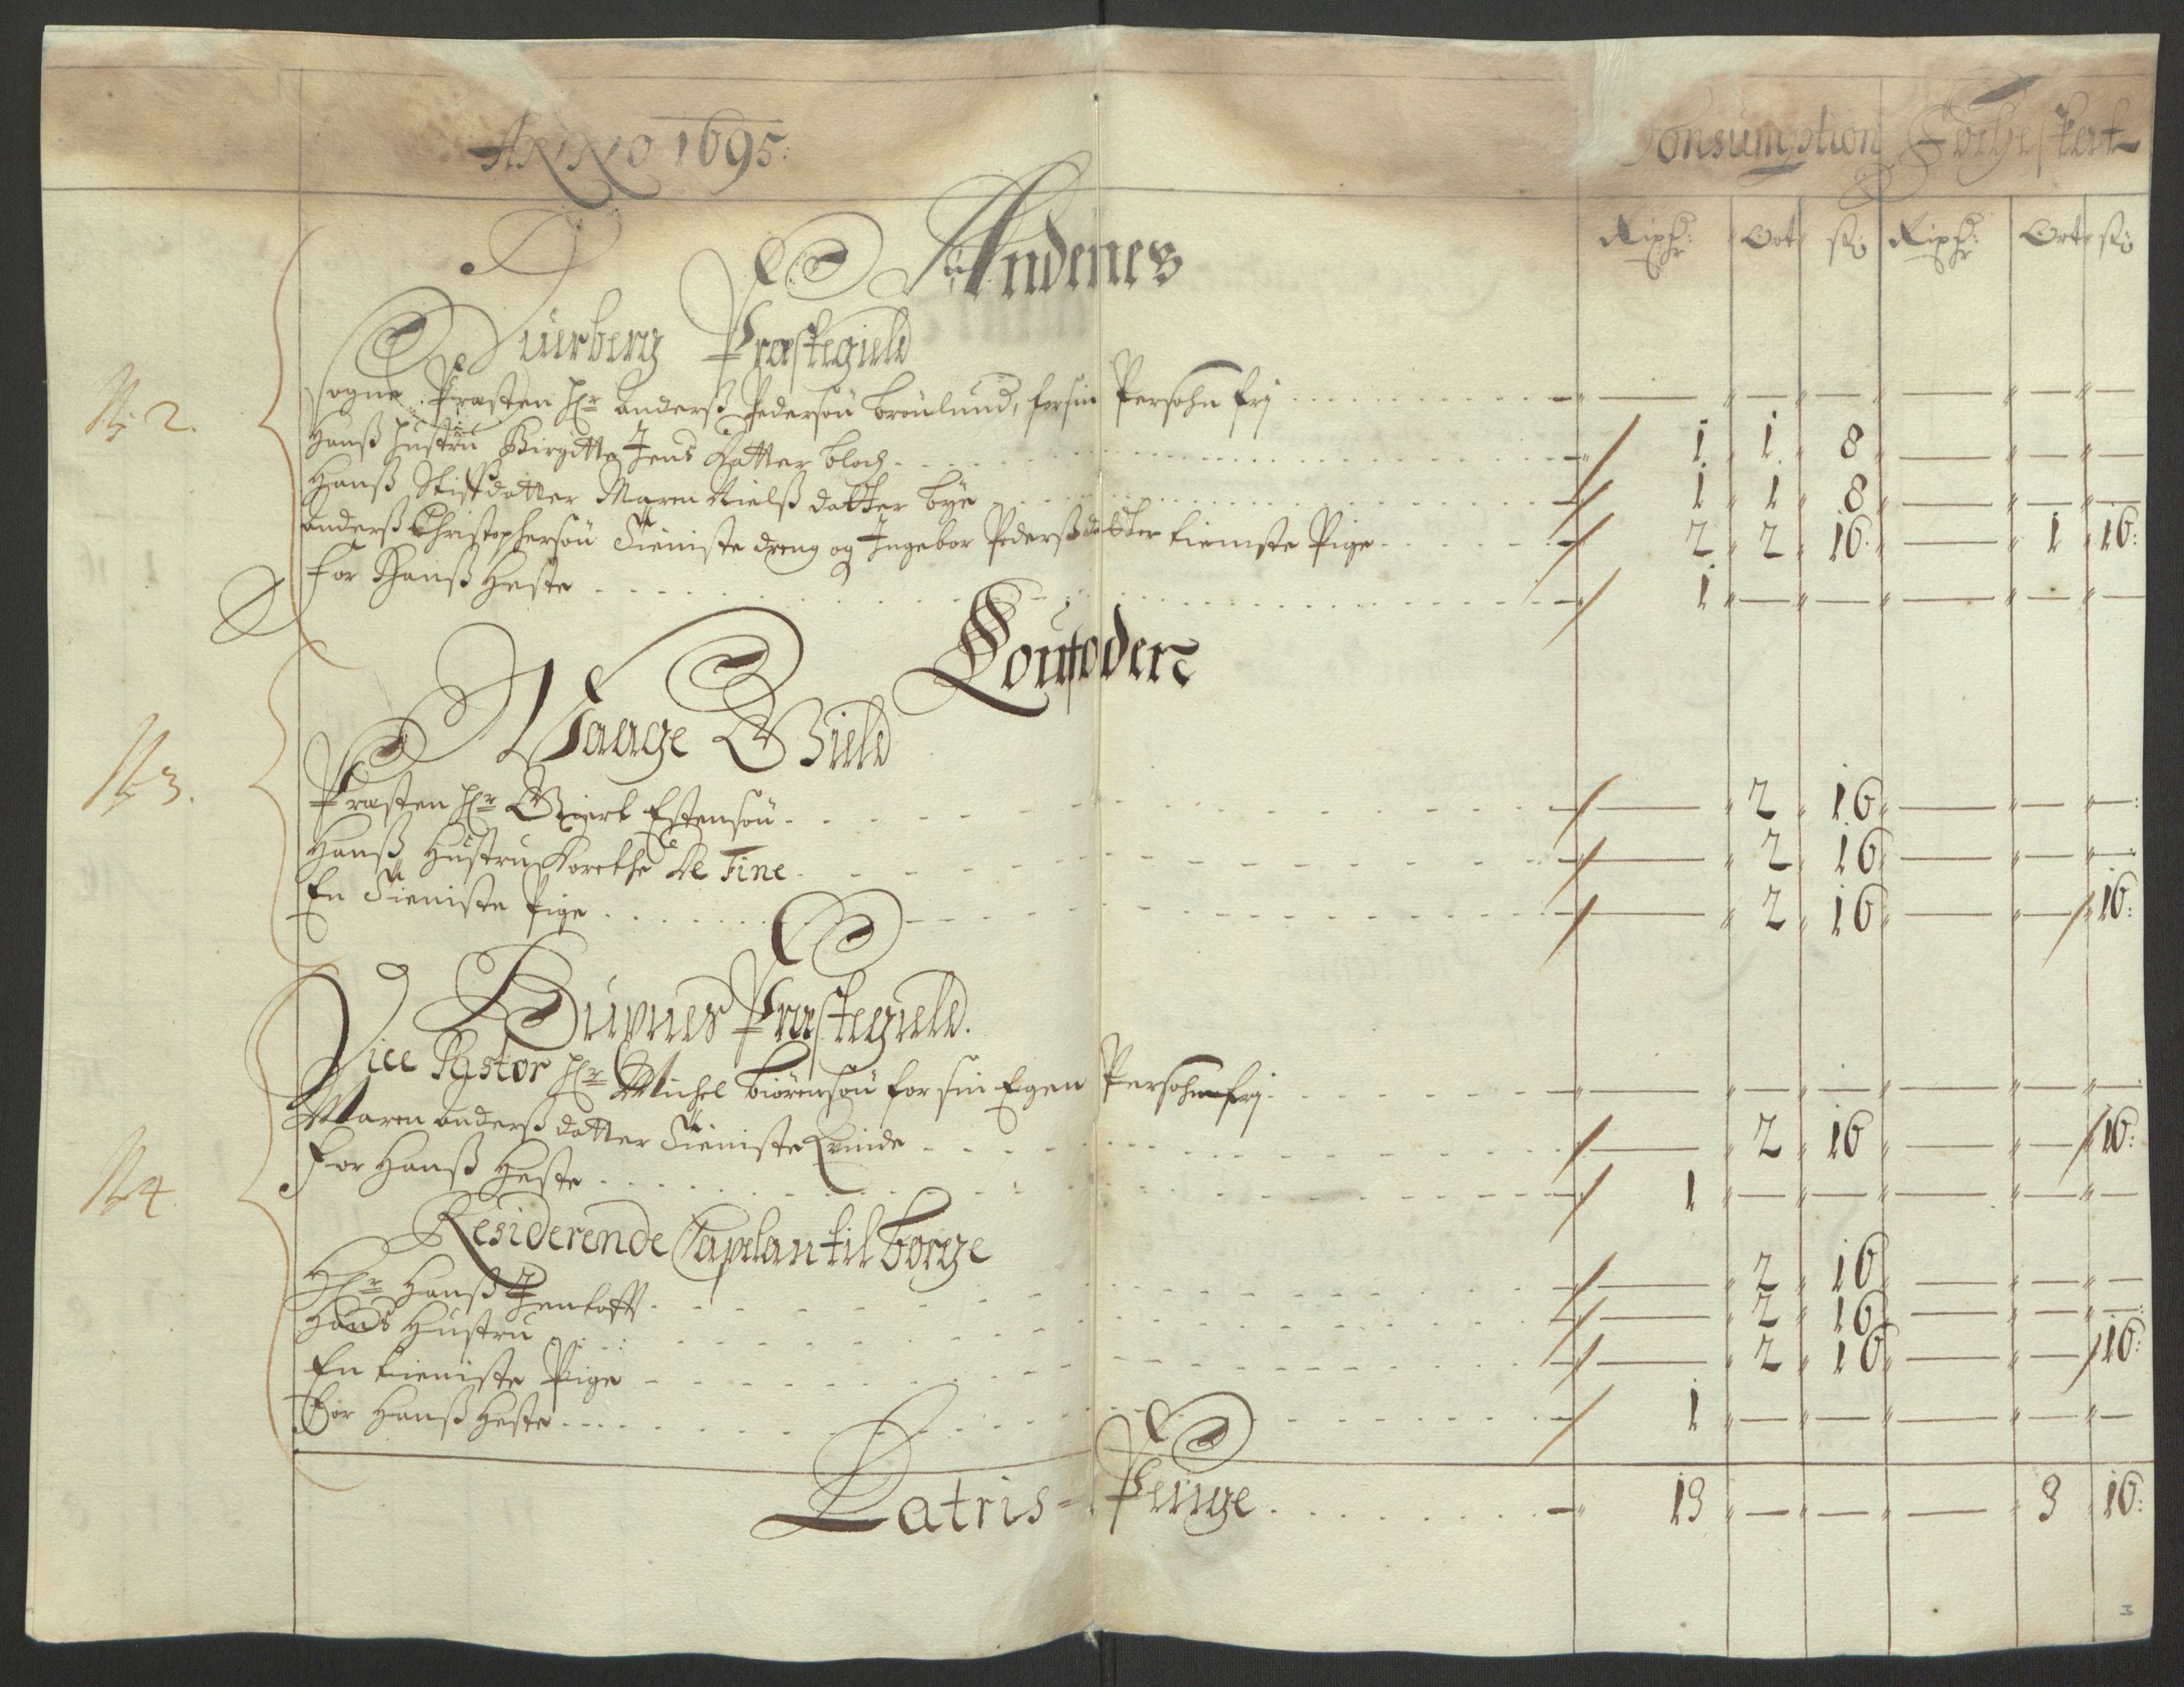 Anno 1695:
Consumption Folcheskat
Rixdr: Ort sk: Rixdr: Ort sk:
Andenes
Duerberg Præstegield
No 2.
Sogne Præsten Hr Anderß Pedersøn Brønlund, for sin Persohn frj — — — — — —
Hanß Hustru Birgitte Jens Datter Bloch 1 1 8 — — —
Hanß Stifdatter Maren Nielß datter bye 1 1 8 — — —
Anderß Christophersøn Tieniste dreng og Ingebor Pederßdatter tieniste Pige 2 2 16 — 1 16:
For Hanß Heste 1 — — — — —
Loufoden
Waage Gield
No 3.
Præsten Hr Giert Estensøn — 2 16 — — —
Hanß Hustru Dorethe De Fine — 2 16 — — —
En Tieniste Pige — 2 16 — — 16:
Buxnes Præstegield.
No 4.
Vice Pastor Hr Michel Biørensøn for sin Egen Persohn frj — — — — — —
Maren Anderß datter Tieniste Qvinde — 2 16 — — 16:
For Hanß Heste 1 — — — — —
Residerende Capelan til Borge
Hr Hanß Jentoft — 2 16 — — —
Hans Hustru — 2 16 — — —
En tieniste Pige — 2 16 — — 16:
For Hanß Heste 1 — — — — —
Latris Penge 13 — — — 3 16:
3